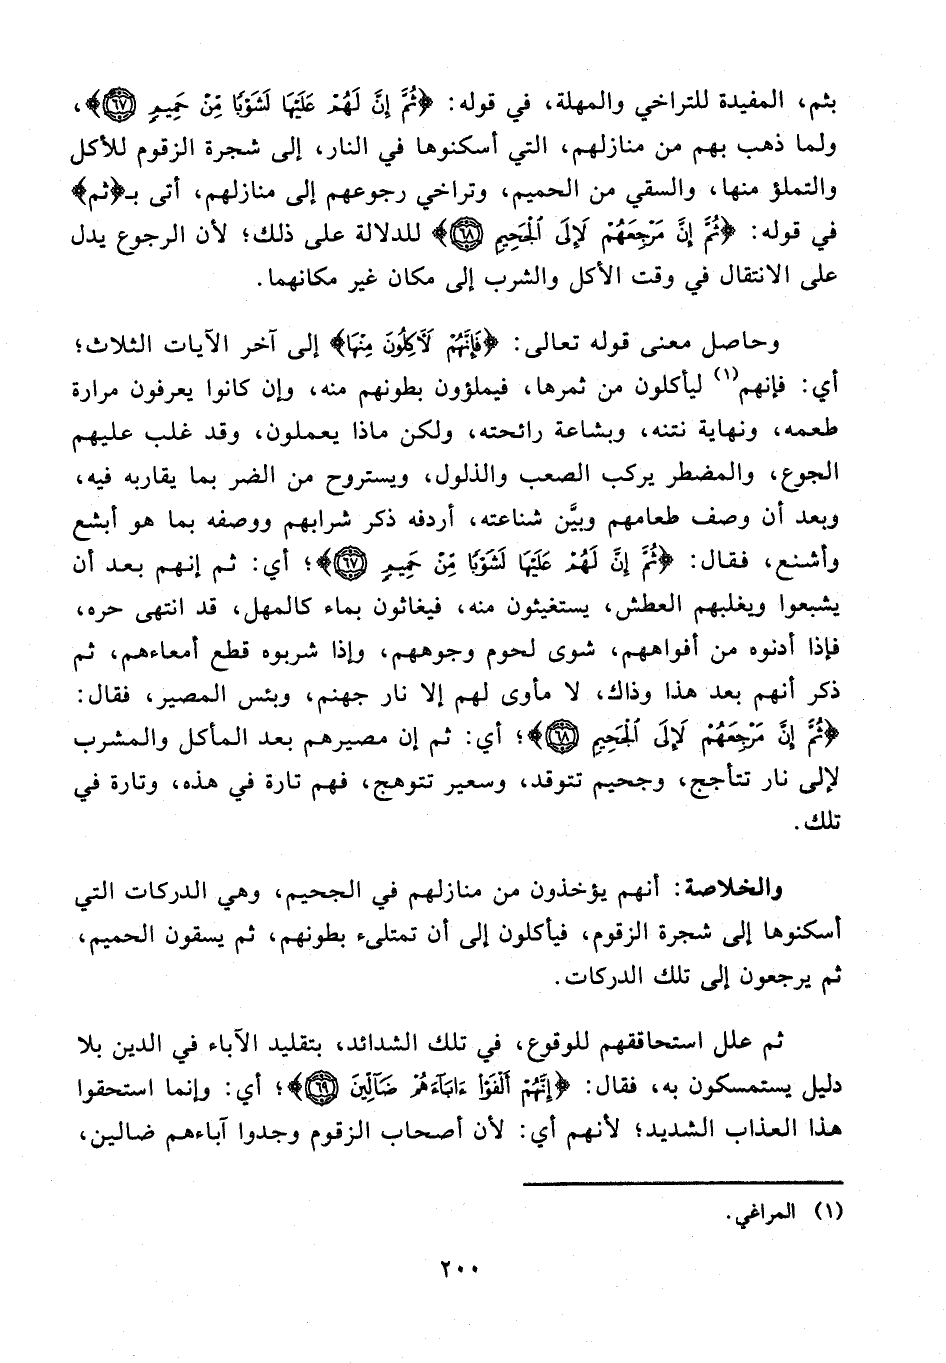 بثم، المفيدة للتراخي والمهلة، في قوله: ﴿ثُمَّ إِنَّ لَهُمْ عَلَيْهَا لَشَوْبًا مِّنْ حَمِيمٍ ۝٦٧﴾،
ولما ذهب بهم من منازلهم، التي أسكنوها في النار، إلى شجرة الزقوم للأكل
والتملؤ منها، والسقي من الحميم، وتراخي رجوعهم إلى منازلهم، أتى بـ﴿ثم﴾
في قوله: ﴿ثُمَّ إِنَّ مَرْجِعَهُمْ لَإِلَى ٱلْجَحِيمِ ۝٦٨﴾ للدلالة على ذلك؛ لأن الرجوع يدل
على الانتقال في وقت الأكل والشرب إلى مكان غير مكانهما.
وحاصل معنى قوله تعالى: ﴿فَإِنَّهُمْ لَآكِلُونَ مِنْهَا﴾ إلى آخر الآيات الثلاث؛
أي: فإنهم(١) ليأكلون من ثمرها، فيملؤون بطونهم منه، وإن كانوا يعرفون مرارة
طعمه، ونهاية نتنه، وبشاعة رائحته، ولكن ماذا يعملون، وقد غلب عليهم
الجوع، والمضطر يركب الصعب والذلول، ويستروح من الضر بما يقاربه فيه،
وبعد أن وصف طعامهم وبيَّن شناعته، أردفه ذكر شرابهم ووصفه بما هو أبشع
وأشنع، فقال: ﴿ثُمَّ إِنَّ لَهُمْ عَلَيْهَا لَشَوْبًا مِّنْ حَمِيمٍ ۝٦٧﴾؛ أي: ثم إنهم بعد أن
يشبعوا ويغلبهم العطش، يستغيثون منه، فيغاثون بماء كالمهل، قد انتهى حره،
فإذا أدنوه من أفواههم، شوى لحوم وجوههم، وإذا شربوه قطع أمعاءهم، ثم
ذكر أنهم بعد هذا وذاك، لا مأوى لهم إلا نار جهنم، وبئس المصير، فقال:
﴿ثُمَّ إِنَّ مَرْجِعَهُمْ لَإِلَى ٱلْجَحِيمِ ۝٦٨﴾؛ أي: ثم إن مصيرهم بعد المأكل والمشرب
لإلى نار تتأجج، وجحيم تتوقد، وسعير تتوهج، فهم تارة في هذه، وتارة في
تلك.
والخلاصة: أنهم يؤخذون من منازلهم في الجحيم، وهي الدركات التي
أسكنوها إلى شجرة الزقوم، فيأكلون إلى أن تمتلىء بطونهم، ثم يسقون الحميم،
ثم يرجعون إلى تلك الدركات.
ثم علل استحاققهم للوقوع، في تلك الشدائد، بتقليد الآباء في الدين بلا
دليل يستمسكون به، فقال: ﴿إِنَّهُمْ أَلْفَوْا۟ ءَابَآءَهُمْ ضَآلِّينَ ۝٦٩﴾؛ أي: وإنما استحقوا
هذا العذاب الشديد؛ لأنهم أي: لأن أصحاب الزقوم وجدوا آباءهم ضالين،
(١) المراغي.
٢٠٠